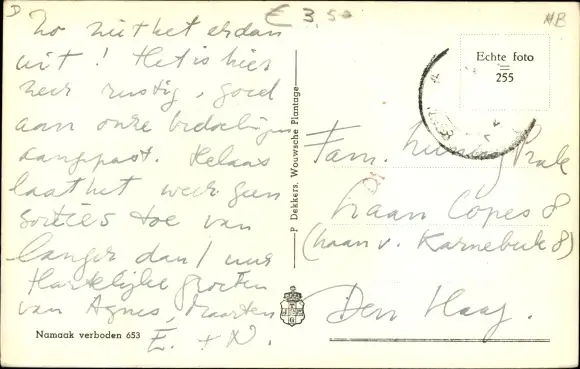 D
€ 3,50
HB
Zo ziet het er dan
uit! Het is hier
zeer rustig, goed
aan onze bedoelingen
aangepast. Helaas
laat het weer geen
sorties toe van
langer dan 1 uur
Hartelijke groeten
van Agnes, Maarten
E. + N.
Namaak verboden 653
P. Dekkers, Wouwsche Plantage
Echte foto
255
Fam.
Laan Copes 8
(Laan v. Karnebeek 8)
Den Haag.